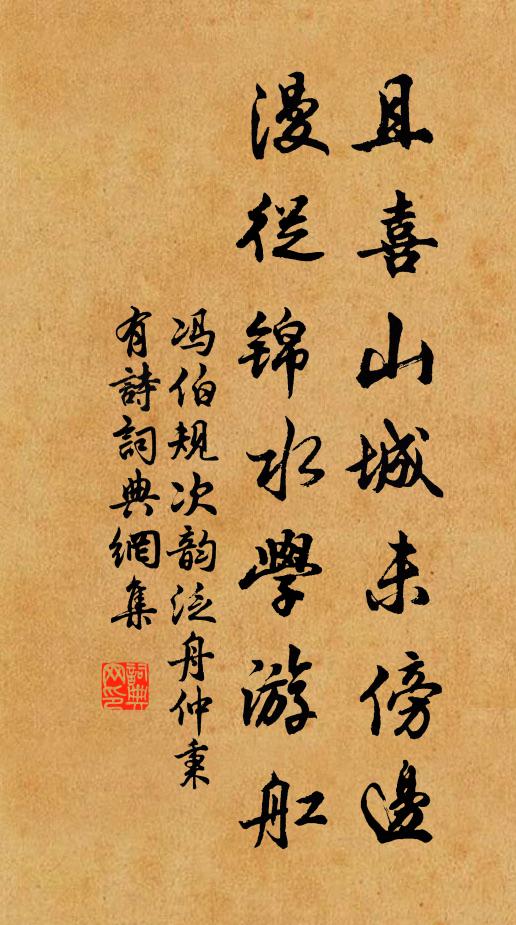 且喜山城未傍邊
漫從锦水學游舡
冯伯規次韵泛舟仲秉
有詩詞典網集
詞典
网印